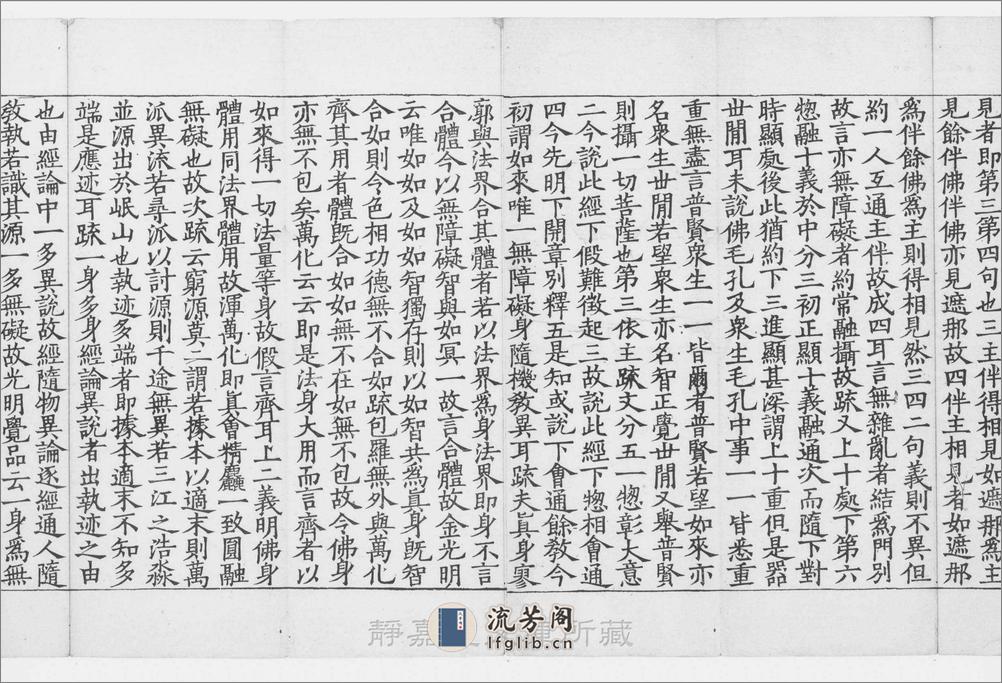 見者即第三第四句也三主伴得相見如遮那爲主
見餘伴佛伴佛亦見遮那故四伴主相見者如遮那
爲伴餘佛爲主則得相見然三四二句義則不異但
約一人互通主伴故成四耳言無雜亂者結爲門別
故言亦無障礙者約常融攝故䟽又上十處下第六
惣融十義於中分三初正顯十義融通次而隨下對
時顯處後此猶約下三進顯甚深謂上十重但是器
世間耳未說佛毛孔及衆生毛孔中事一一皆悉重
重無盡言普賢衆生一一皆爾者普賢若望如來亦
名衆生世間若望衆生亦名智正覺世間又舉普賢
則攝一切菩薩也第三依主䟽文分五一惣彰大意
二今說此經下假難徵起三故說此經下惣相會通
四今先明下開章別釋五是知或說下會通餘敎今
初謂如來唯一無障礙身隨機敎異耳䟽夫眞身寥
廓與法界合其體者若以法界爲身法界即身不言
合體今以無障礙智與如冥一故言合體故金光明
云唯如如及如如智獨存則以如智共爲眞身旣智
合如則令色相功德無不合如䟽包羅無外與萬化
齊其用者體旣合如如無不在如無不包故令佛身
亦無不包矣萬化云云即是法身大用而言齊者以
如來得一切法量等身故假言齊耳上二義明佛身
體用同法界體用故渾萬化即眞會精麤一致圓融
無礙也故次䟽云窮源莫二謂若據本以適末則萬
派異流若尋派以討源則千途無異若三江之浩淼
並源出於岷山也執迹多端者即據本適末不知多
端是應迹耳䟽一身多身經論異說者出執迹之由
也由經論中一多異說故經隨物異論逐經通人隨
敎執若識其源一多無礙故光明覺品云一身爲無
靜嘉
所藏
流芳阁
lfglib.cn